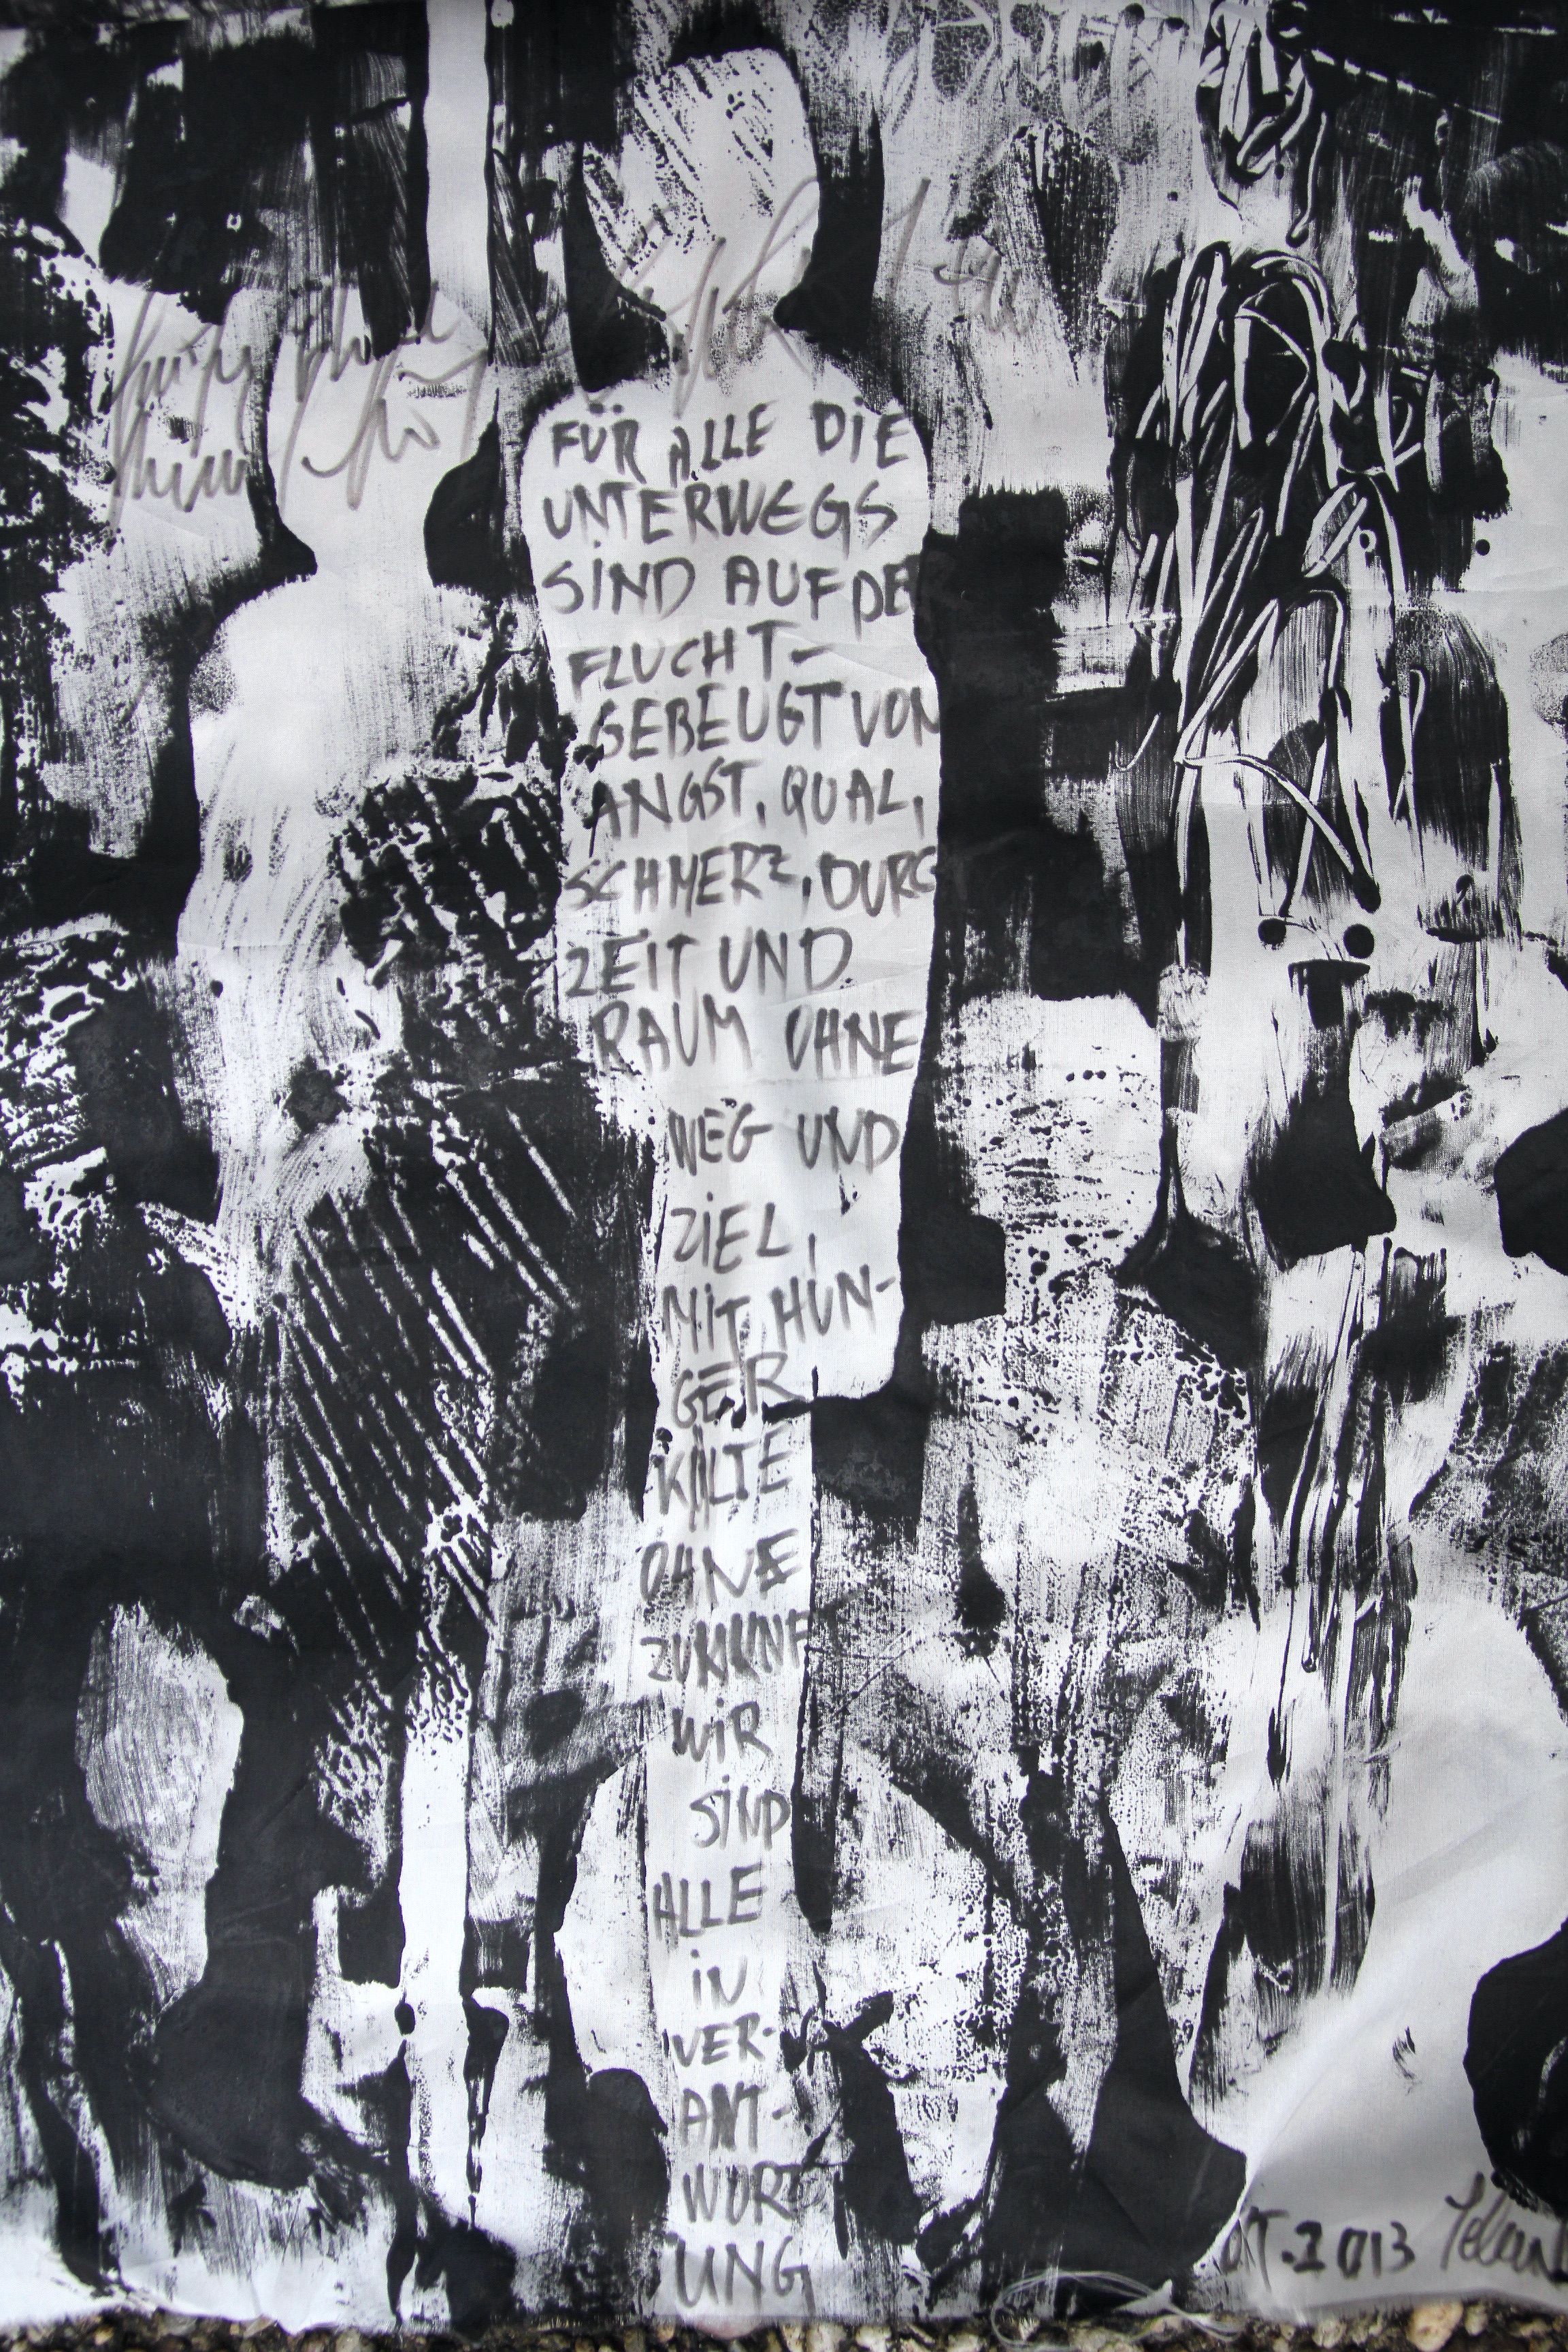 FÜR ALLE DIE
UNTERWEGS
SIND AUF DER
FLUCHT-
GEBEUGT VON
ANGST, QUAL,
SCHMERZ, DURC
ZEIT UND
RAUM OHNE
WEG UND
ZIEL,
MIT HUN-
GER
KÄLTE
OHNE
ZUKUNFT
WIR
SIND
ALLE
IN
VER-
ANT-
WORT
UNG
OKT. 2013